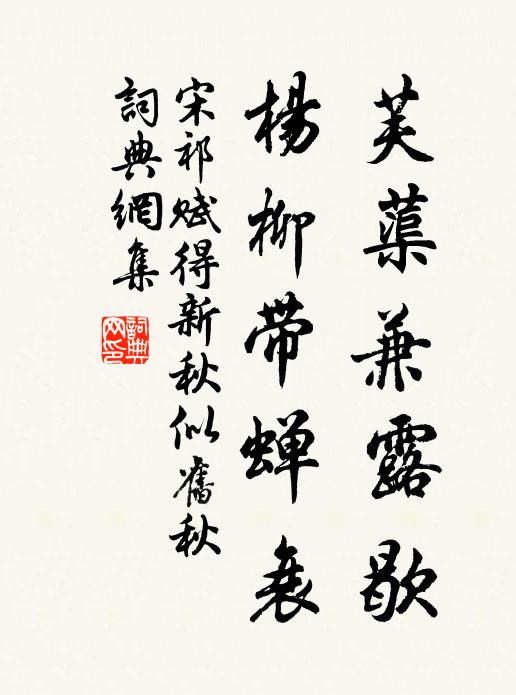 芙蕖兼露歇
楊柳帶蝉衰
宋祁賦得新秋似舊秋
詞典網集
詞典網印